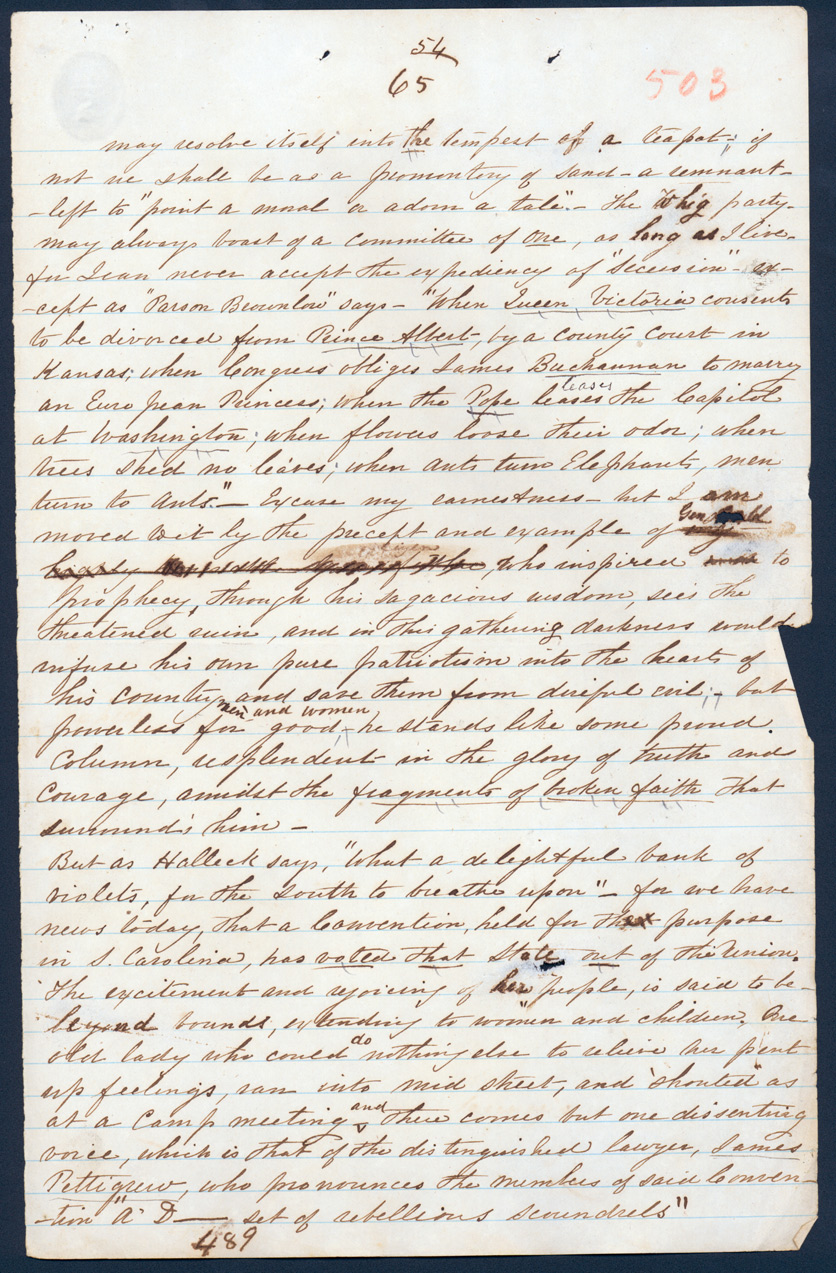 54
65
503
may resolve itself into the tempest of a teapot; if
not we shall be as a promontory of sand - a remnant -
- left to "point a moral or adorn a tale". - The Whig party -
may always boast of a committee of one, as long as I live -
for I can never accept the expediency of "Secession" - ex-
-cept as "Parson Brownlow" says - "When Queen Victoria consents
to be divorced from Prince Albert, by a County Court in
Kansas; when Congress obliges James Buchannan to marry
an European Princess; when the Pope leases the Capitol
leases
at Washington; when flowers loose their odor; when
trees shed no leaves; when ants turn Elephants, men
turn to ants." - Excuse my earnestness - but I am
moved to it by the precept and example of
, who inspired to
prophecy, through his sagacious wisdom, sees the
threatened ruin, and in this gathering darkness would
infuse his own pure patriotism into the hearts of
his country and save them from direful evil; - but
men and women
powerless for good, he stands like some proud
Column, resplendent in the glory of truth and
Courage, amidst the fragments of broken faith that
surround's him -
But as Halleck says, "What a delightful bank of
violets, for the South to breathe upon" - for we have
news today, that a Convention, held for the purpose
in S. Carolina, has voted that State out of the Union.
The excitement and rejoicing of her people, is said to be-
beyond bounds, extending to women and children. One
old lady who could do nothing else to relieve her pent
up feelings, ran into mid street, and "shouted" as
at a Camp meeting and there comes but one dissenting
voice, which is that of the distinguished lawyer, James
Pettigrew, who pronounces the members of said Conven-
-tion "A D— set of rebellious scoundrels"
489